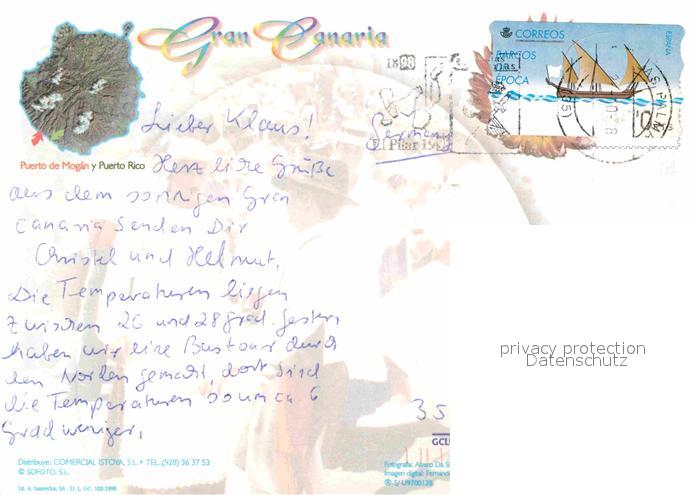 Gran Canaria
CORREOS
ESPAÑA
BARCOS
DE
ÉPOCA
1898
Lieber Klaus!
Germany
El Pilar
Puerto de Mogán y Puerto Rico
Herzliche Grüße
aus dem sonnigen Gran
Canaria senden Dir
Christel und Helmut.
Die Temperaturen liegen
zwischen 26 und 28 grad. gestern
haben wir eine Bustour durch
den Norden gemacht, dort sind
die Temperaturen so um ca 6
Grad weniger.
privacy protection
Datenschutz
35
GCL
Distribuye: COMERCIAL ISTOYA, S.L. • TEL.:(928) 36 37 53
© SOFOTO, S.L.
Lit. A. Saavedra, SA - D. L. GC: 102-1998
Fotografía: Alvaro Da Si
Imagen digital: Fernand
S/U9700128